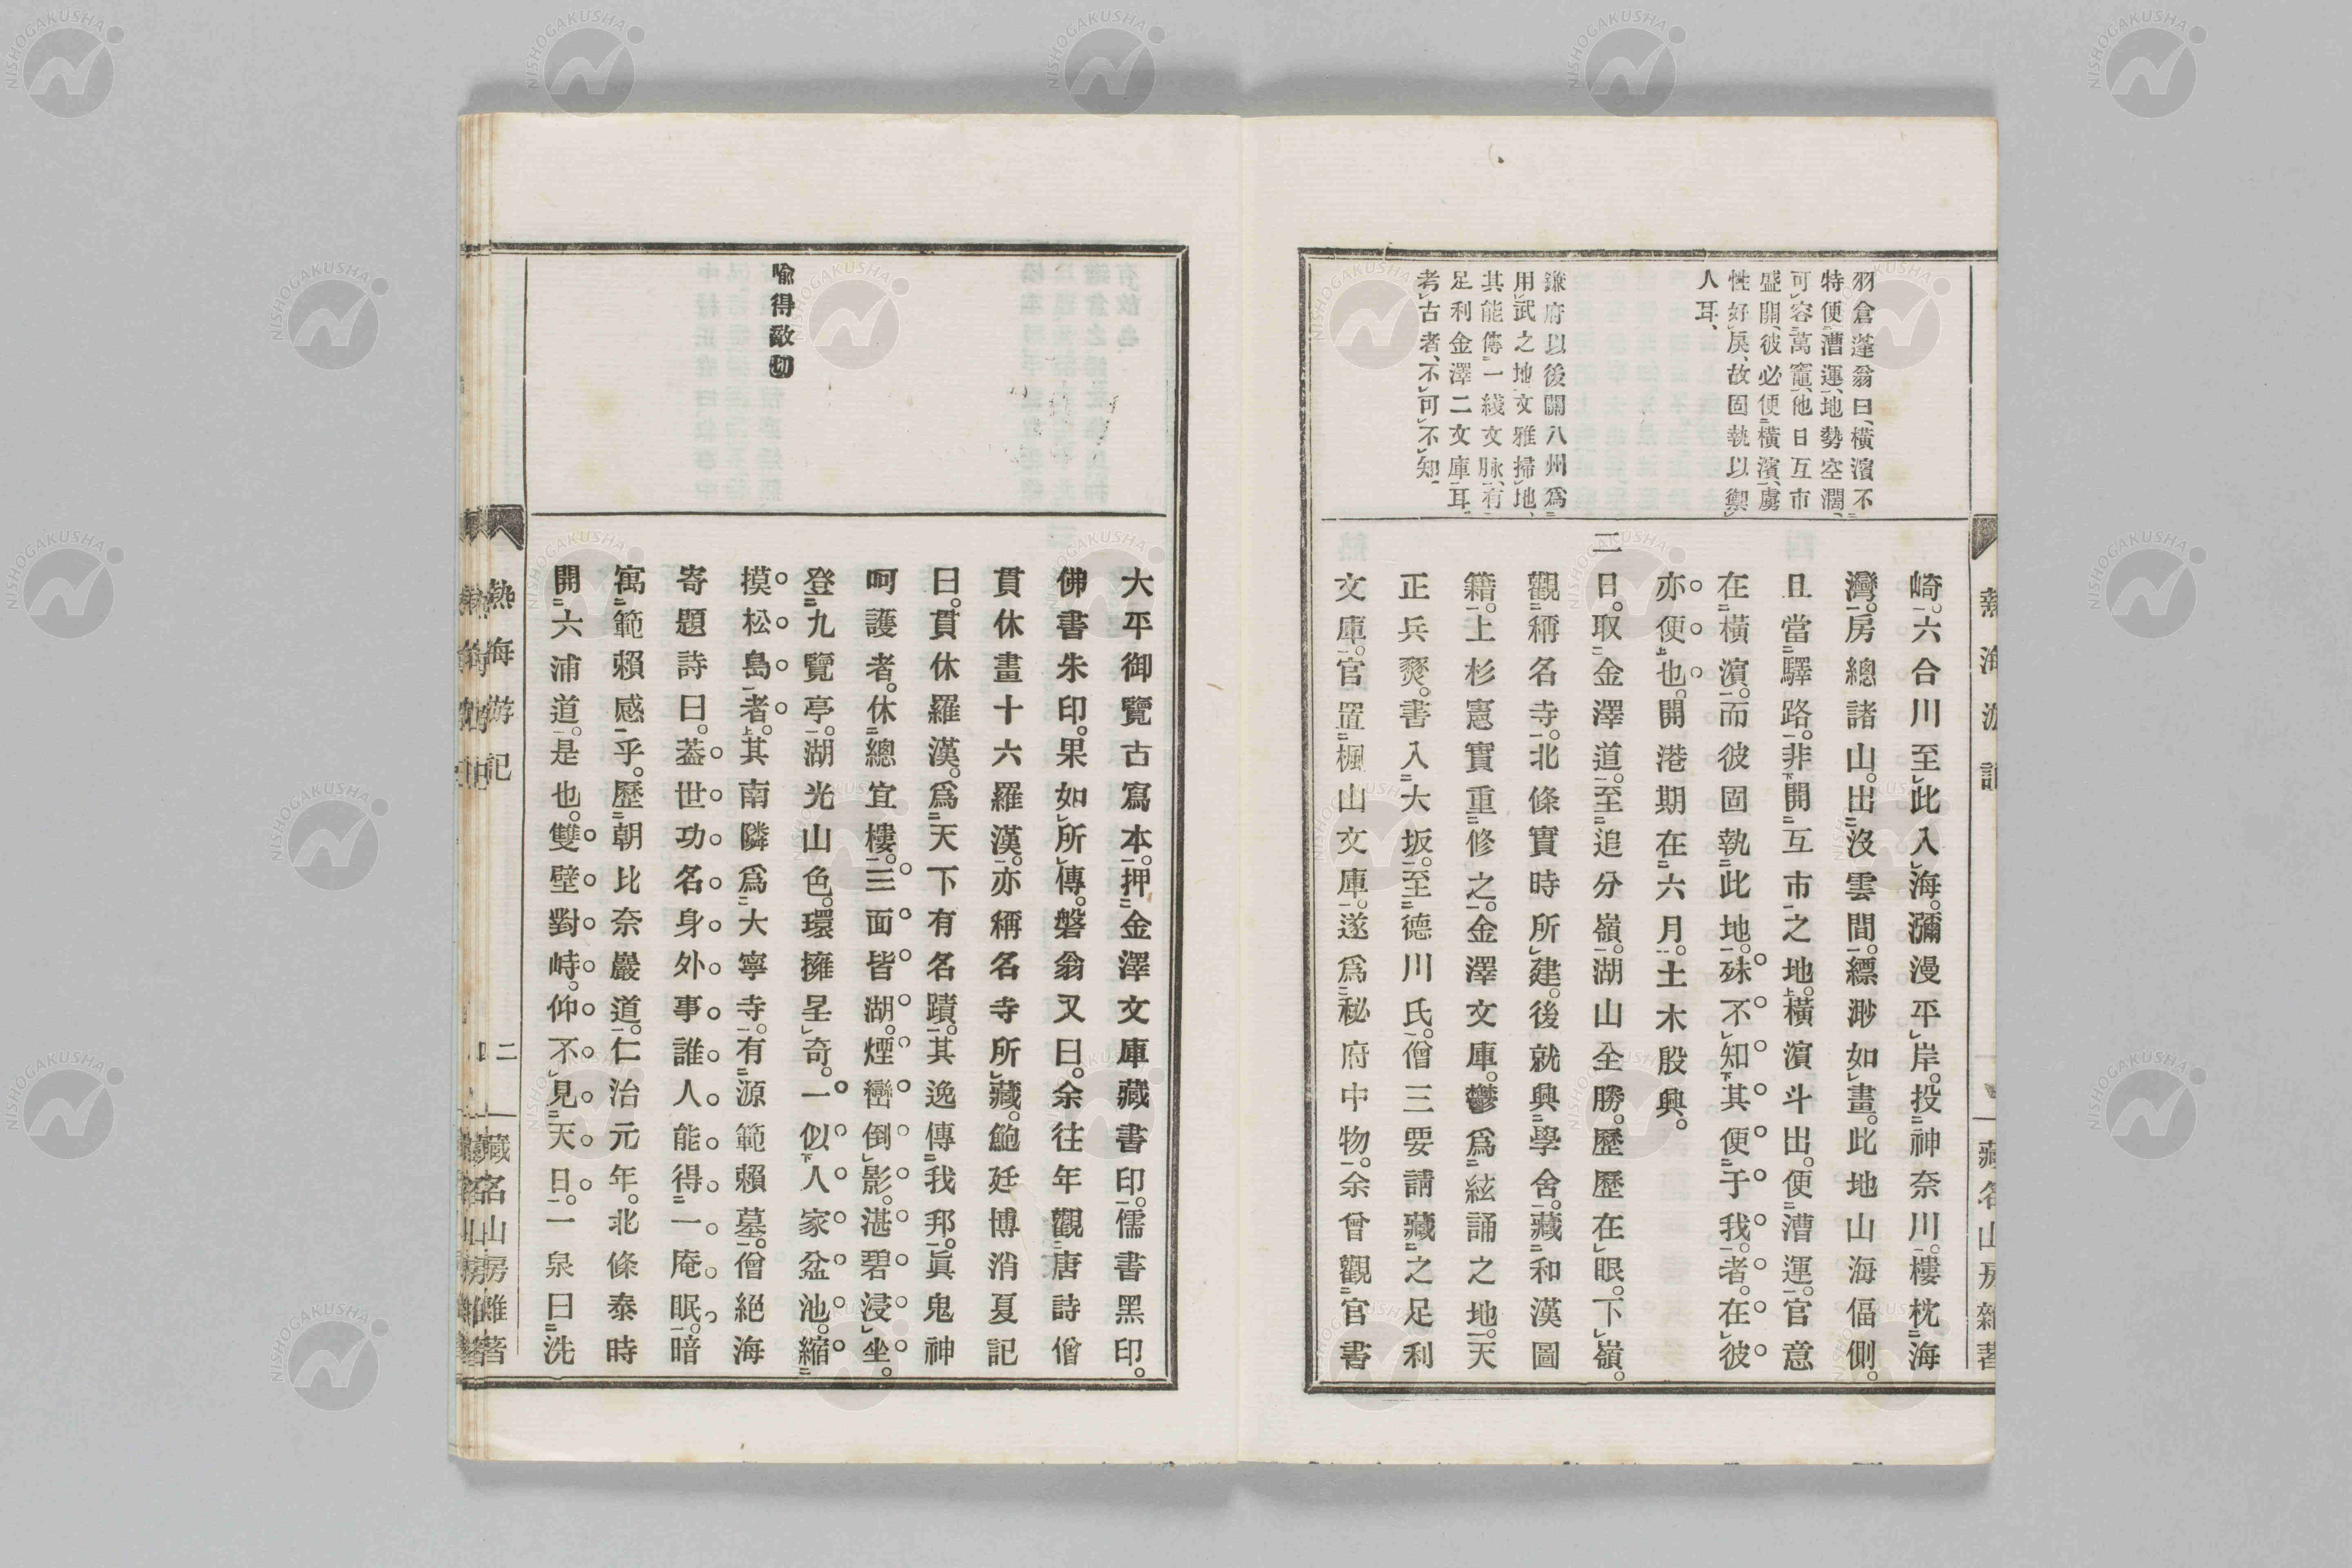 羽倉蓬翁曰、橫濱不
特便漕運、地勢空濶、
可容萬竈、他日互市
盛開、彼必便橫濱、虜
性好戾、故固執以禦
人耳、
鎌府以後關八州爲
用武之地、文雅掃地、
其能傳一綫文脉、有
足利金澤二文庫耳、
考古者、不可不知、
崎。六合川至此入海。瀰漫平岸。投神奈川。樓枕海
灣。房總諸山。出沒雲間。縹渺如畫。此地山海偪側。
且當驛路。非開互市之地。橫濱斗出。便漕運。官意
在橫濱。而彼固執此地。殊不知其便于我者。在彼
亦便也。開港期在六月。土木殷興。
二日。取金澤道。至追分嶺。湖山全勝。歷歷在眼。下嶺。
觀稱名寺。北條實時所建。後就興學舍。藏和漢圖
籍。上杉憲實重修之。金澤文庫。鬱爲絃誦之地。天
正兵燹。書入大坂。至德川氏。僧三要請藏之足利
文庫。官置楓山文庫。遂爲秘府中物。余曾觀官書
熱海游記
藏名山房雜著
大平御覽古寫本。押金澤文庫藏書印。儒書黑印。
佛書朱印。果如所傳。磐翁又曰。余往年觀唐詩僧
貫休畫十六羅漢。亦稱名寺所藏。鮑廷博消夏記
曰。貫休羅漢。爲天下有名蹟。其逸傳我邦。眞鬼神
呵護者。休總宜樓。三面皆湖。煙巒倒影。湛碧浸坐。
登九覽亭。湖光山色。環擁呈奇。一似人家盆池。縮
摸松島者。其南隣爲大寧寺。有源範賴墓。僧絕海
寄題詩曰。蓋世功名身外事誰人能得一庵眠。暗
寓範賴感乎。歷朝比奈嚴道。仁治元年。北條泰時
開六浦道。是也。雙壁對峙。仰不見天日。一泉曰洗
喩得敢切
熱海游記
二
藏名山房雜著
NISHOGAKUSHA